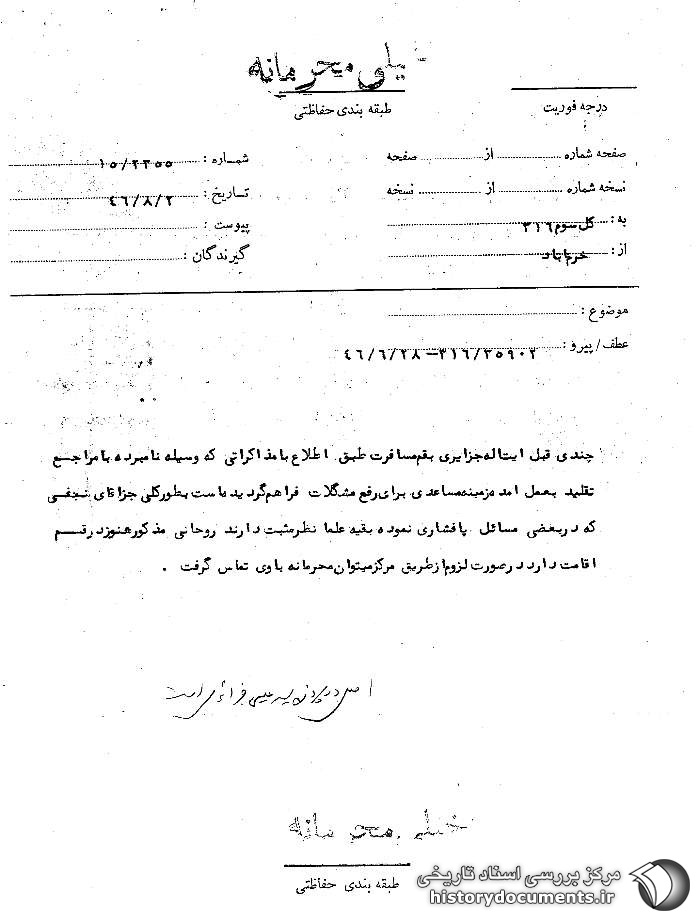 خیلی محرمانه
طبقه بندی حفاظتی
درجه فوریت
صفحه شماره ........ از ........ صفحه
شماره : ۱۵/۲۳۵۵
نسخه شماره ........ از ........ نسخه
تاریخ : ۴۶/۸/۲
به : کل سوم ۳۱۶
پیوست :
از : خرم‌اباد
گیرندگان :
موضوع :
عطف/ پیرو : ۳۱۶/۳۵۹۰۲ – ۴۶/۶/۲۸
چندی قبل ایتاله جزایری بقم مسافرت طبق اطلاع با مذاکراتی که وسیله نامبرده با مراجع
تقلید بعمل امده زمینه مساعدی برای رفع مشگلات فراهم گردیده است بطور کلی جز اقای نجفی
که در بعضی مسائل پافشاری نموده بقیه علما نظر مثبت دارند روحانی مذکور هنوز در قم
اقامت دارد در صورت لزوم از طریق مرکز میتوان محرمانه با وی تماس گرفت .
اصل در پرونده سید عیسی جزائری است
خیلی محرمانه
طبقه بندی حفاظتی
مرکز بررسی اسناد تاریخی
historydocuments.ir